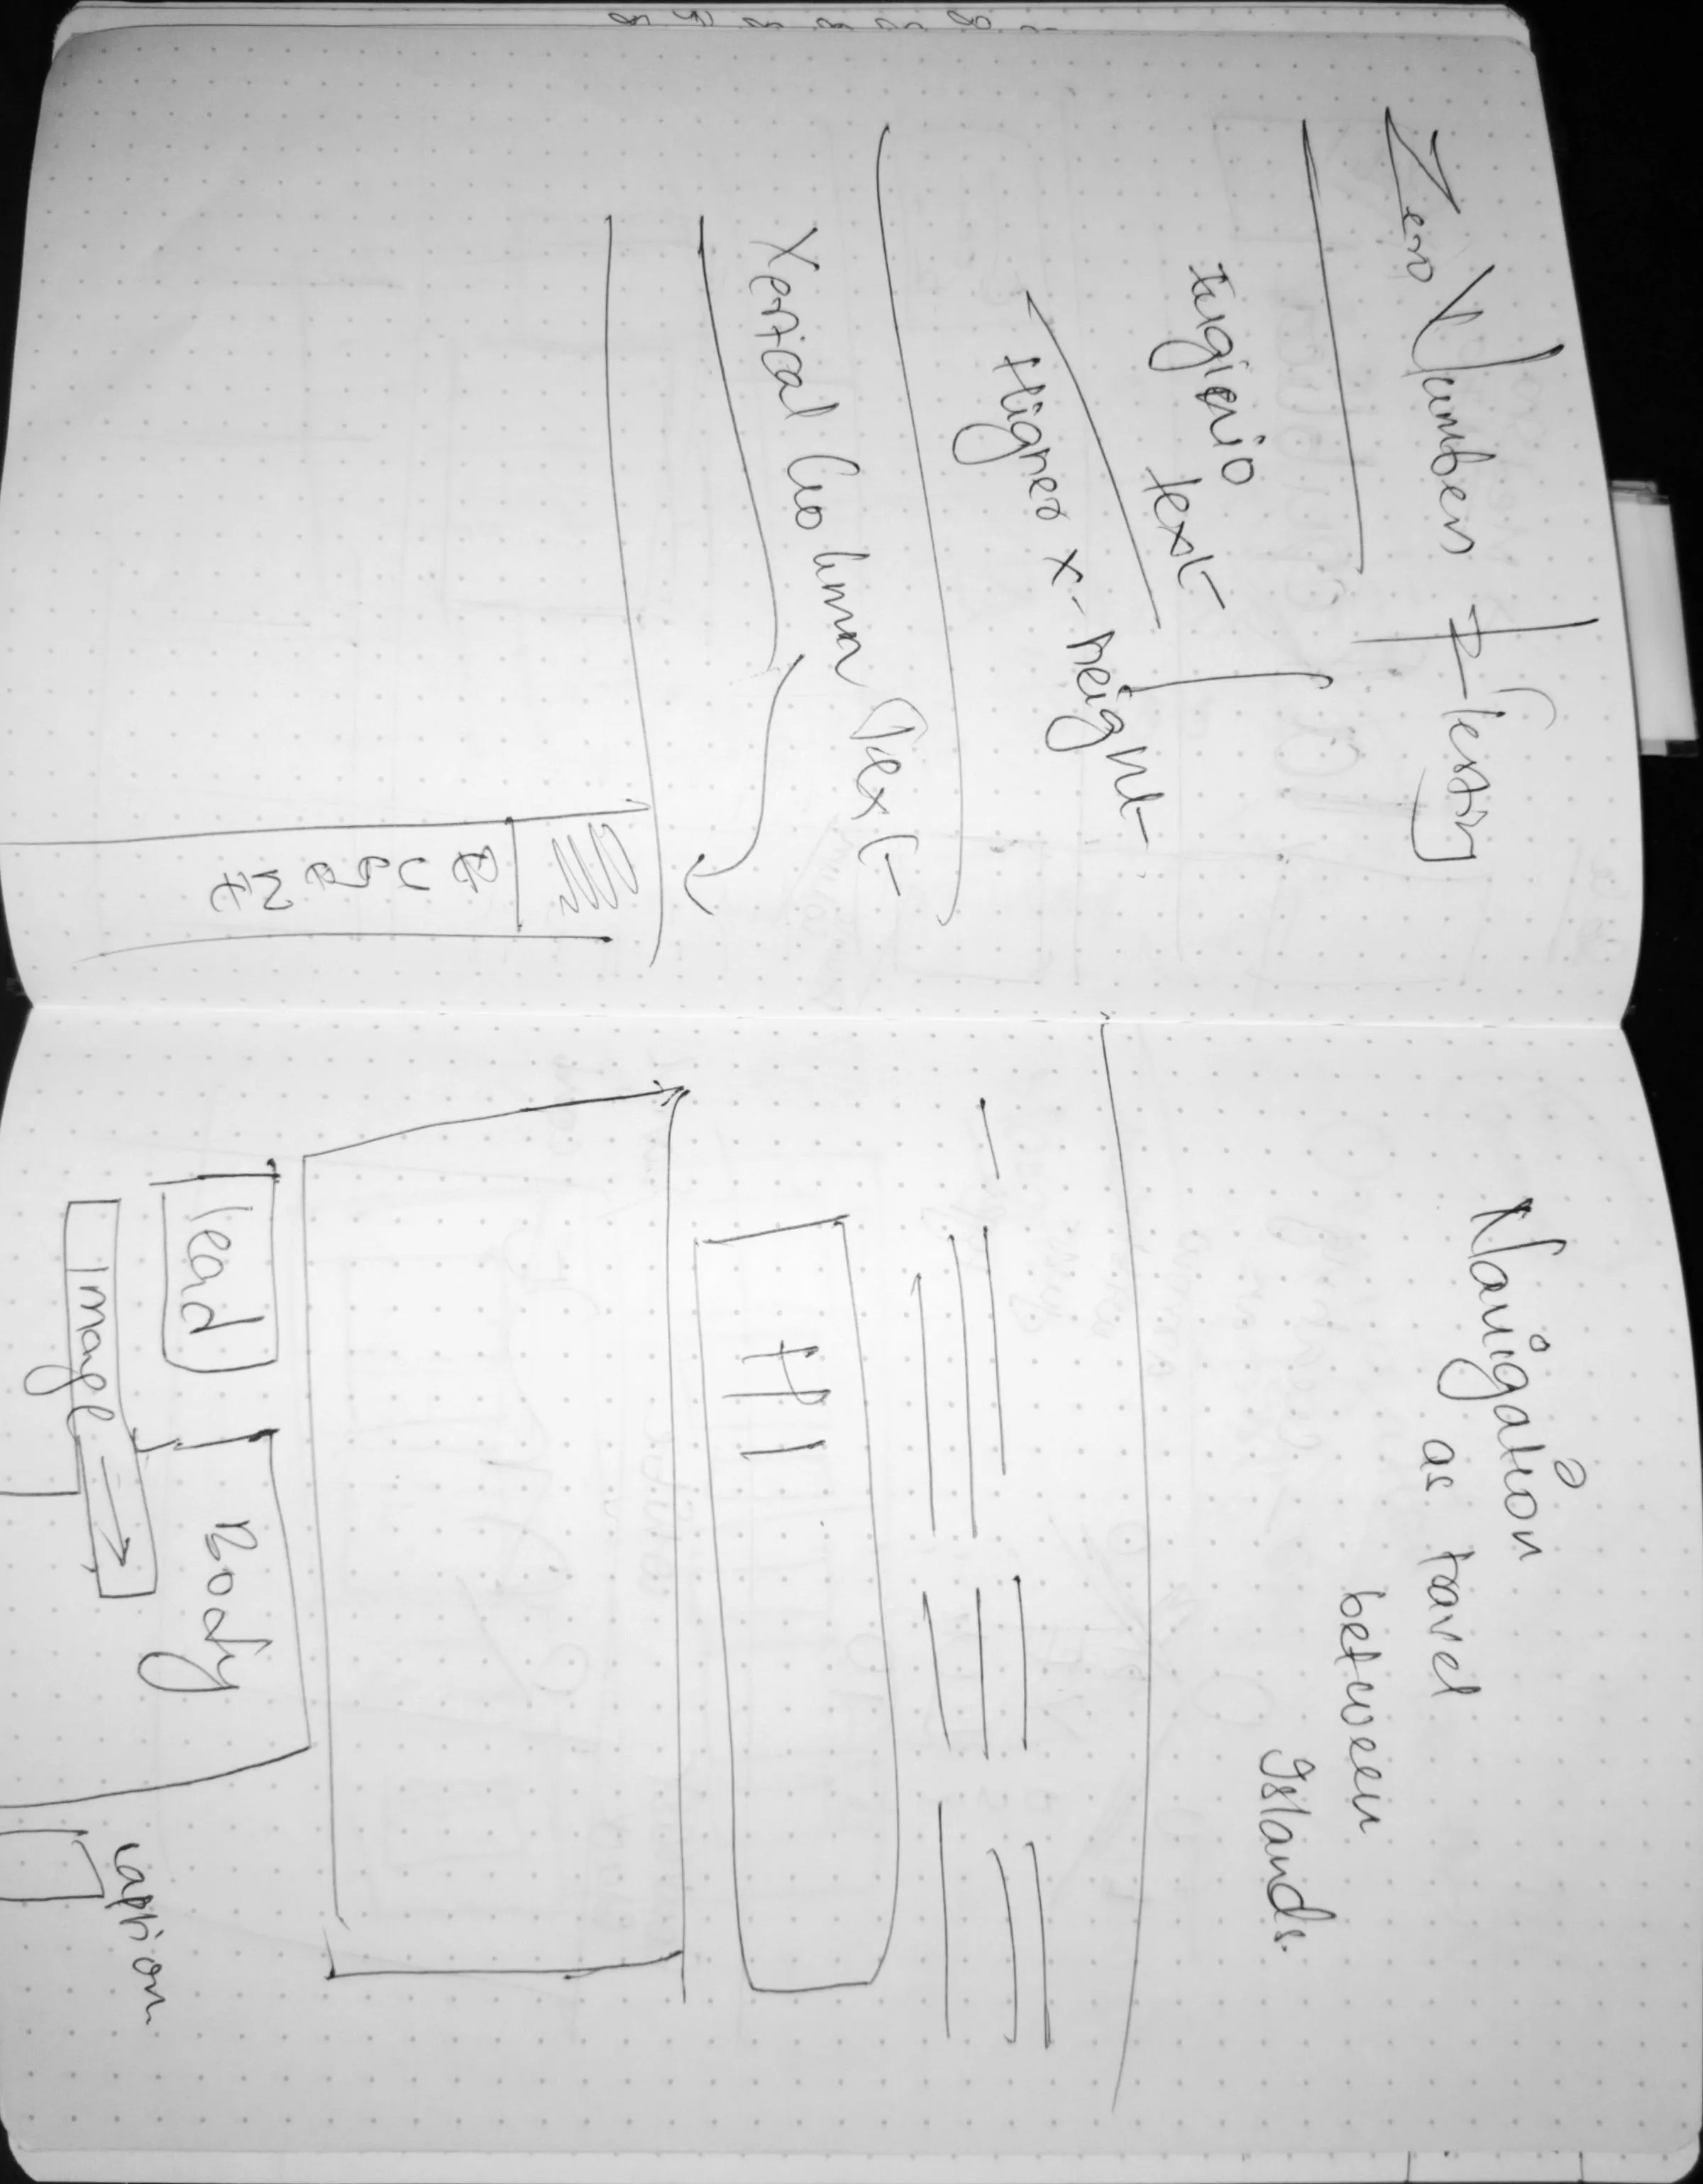 Zero Number Testing
text
Higher x-height
Vertical Column Text
Navigation
as travel
between
Islands.
H1
lead
Body
Image
caption